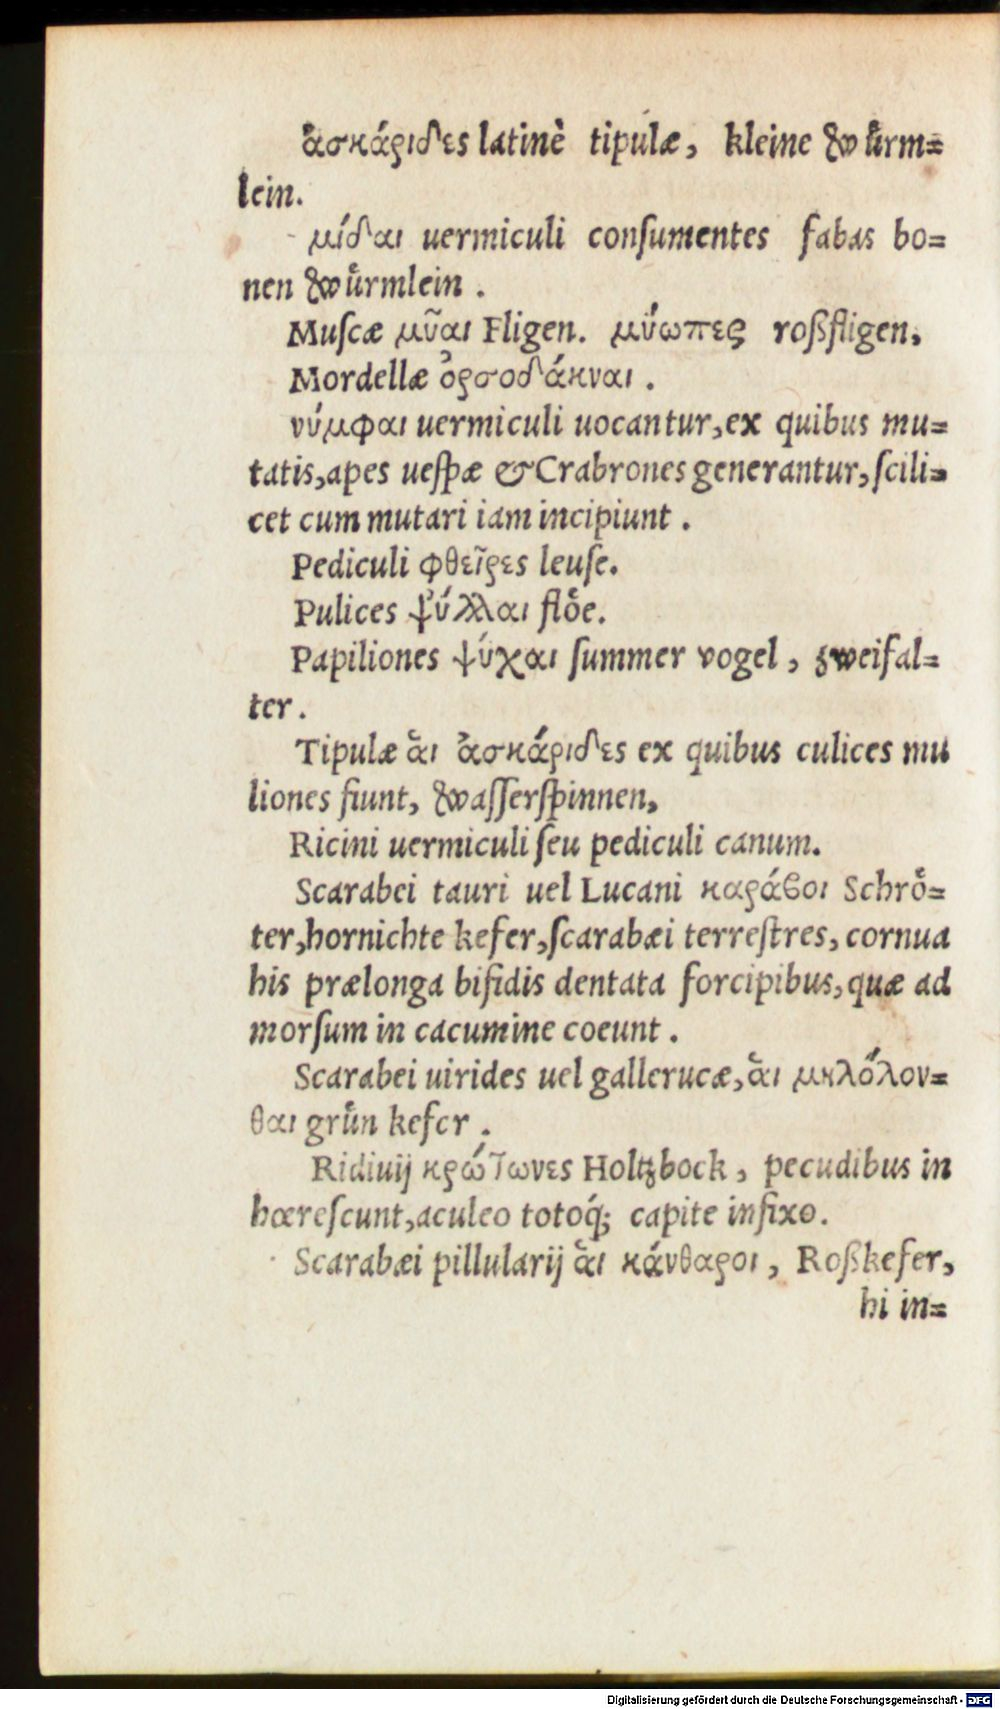 ἀσκάριδες latinè tipulæ, kleine Wuͤrm=
lein.
μίδαι uermiculi conſumentes fabas bo=
nen Wuͤrmlein .
Muſcæ μῦαι Fligen. μύωπες roßfligen,
Mordellæ ὀρσοδάκναι .
νύμφαι uermiculi uocantur,ex quibus mu=
tatis,apes ueſpæ & Crabrones generantur,ſcili=
cet cum mutari iam incipiunt .
Pediculi φθεῖρες leuſe.
Pulices ψύλλαι floͤe.
Papiliones ψύχαι ſummer vogel , zweifal=
ter .
Tipulæ ἁι ἀσκάριδες ex quibus culices mu
liones fiunt, Waſſerſpinnen,
Ricini uermiculi ſeu pediculi canum.
Scarabei tauri uel Lucani καράβοι Schroͤ=
ter,hornichte kefer,ſcarabæi terreſtres, cornua
his prælonga bifidis dentata forcipibus,quæ ad
morſum in cacumine coeunt .
Scarabei uirides uel gallerucæ,ἁι μηλόλον=
θαι gruͤn kefer .
Ridiuij κρότωνες Holtzbock , pecudibus in
hœreſcunt,aculeo totoq́; capite infixo.
Scarabæi pillularij ἁι κάνθαροι , Roßkefer,
hi in=
Digitalisierung gefördert durch die Deutsche Forschungsgemeinschaft - DFG